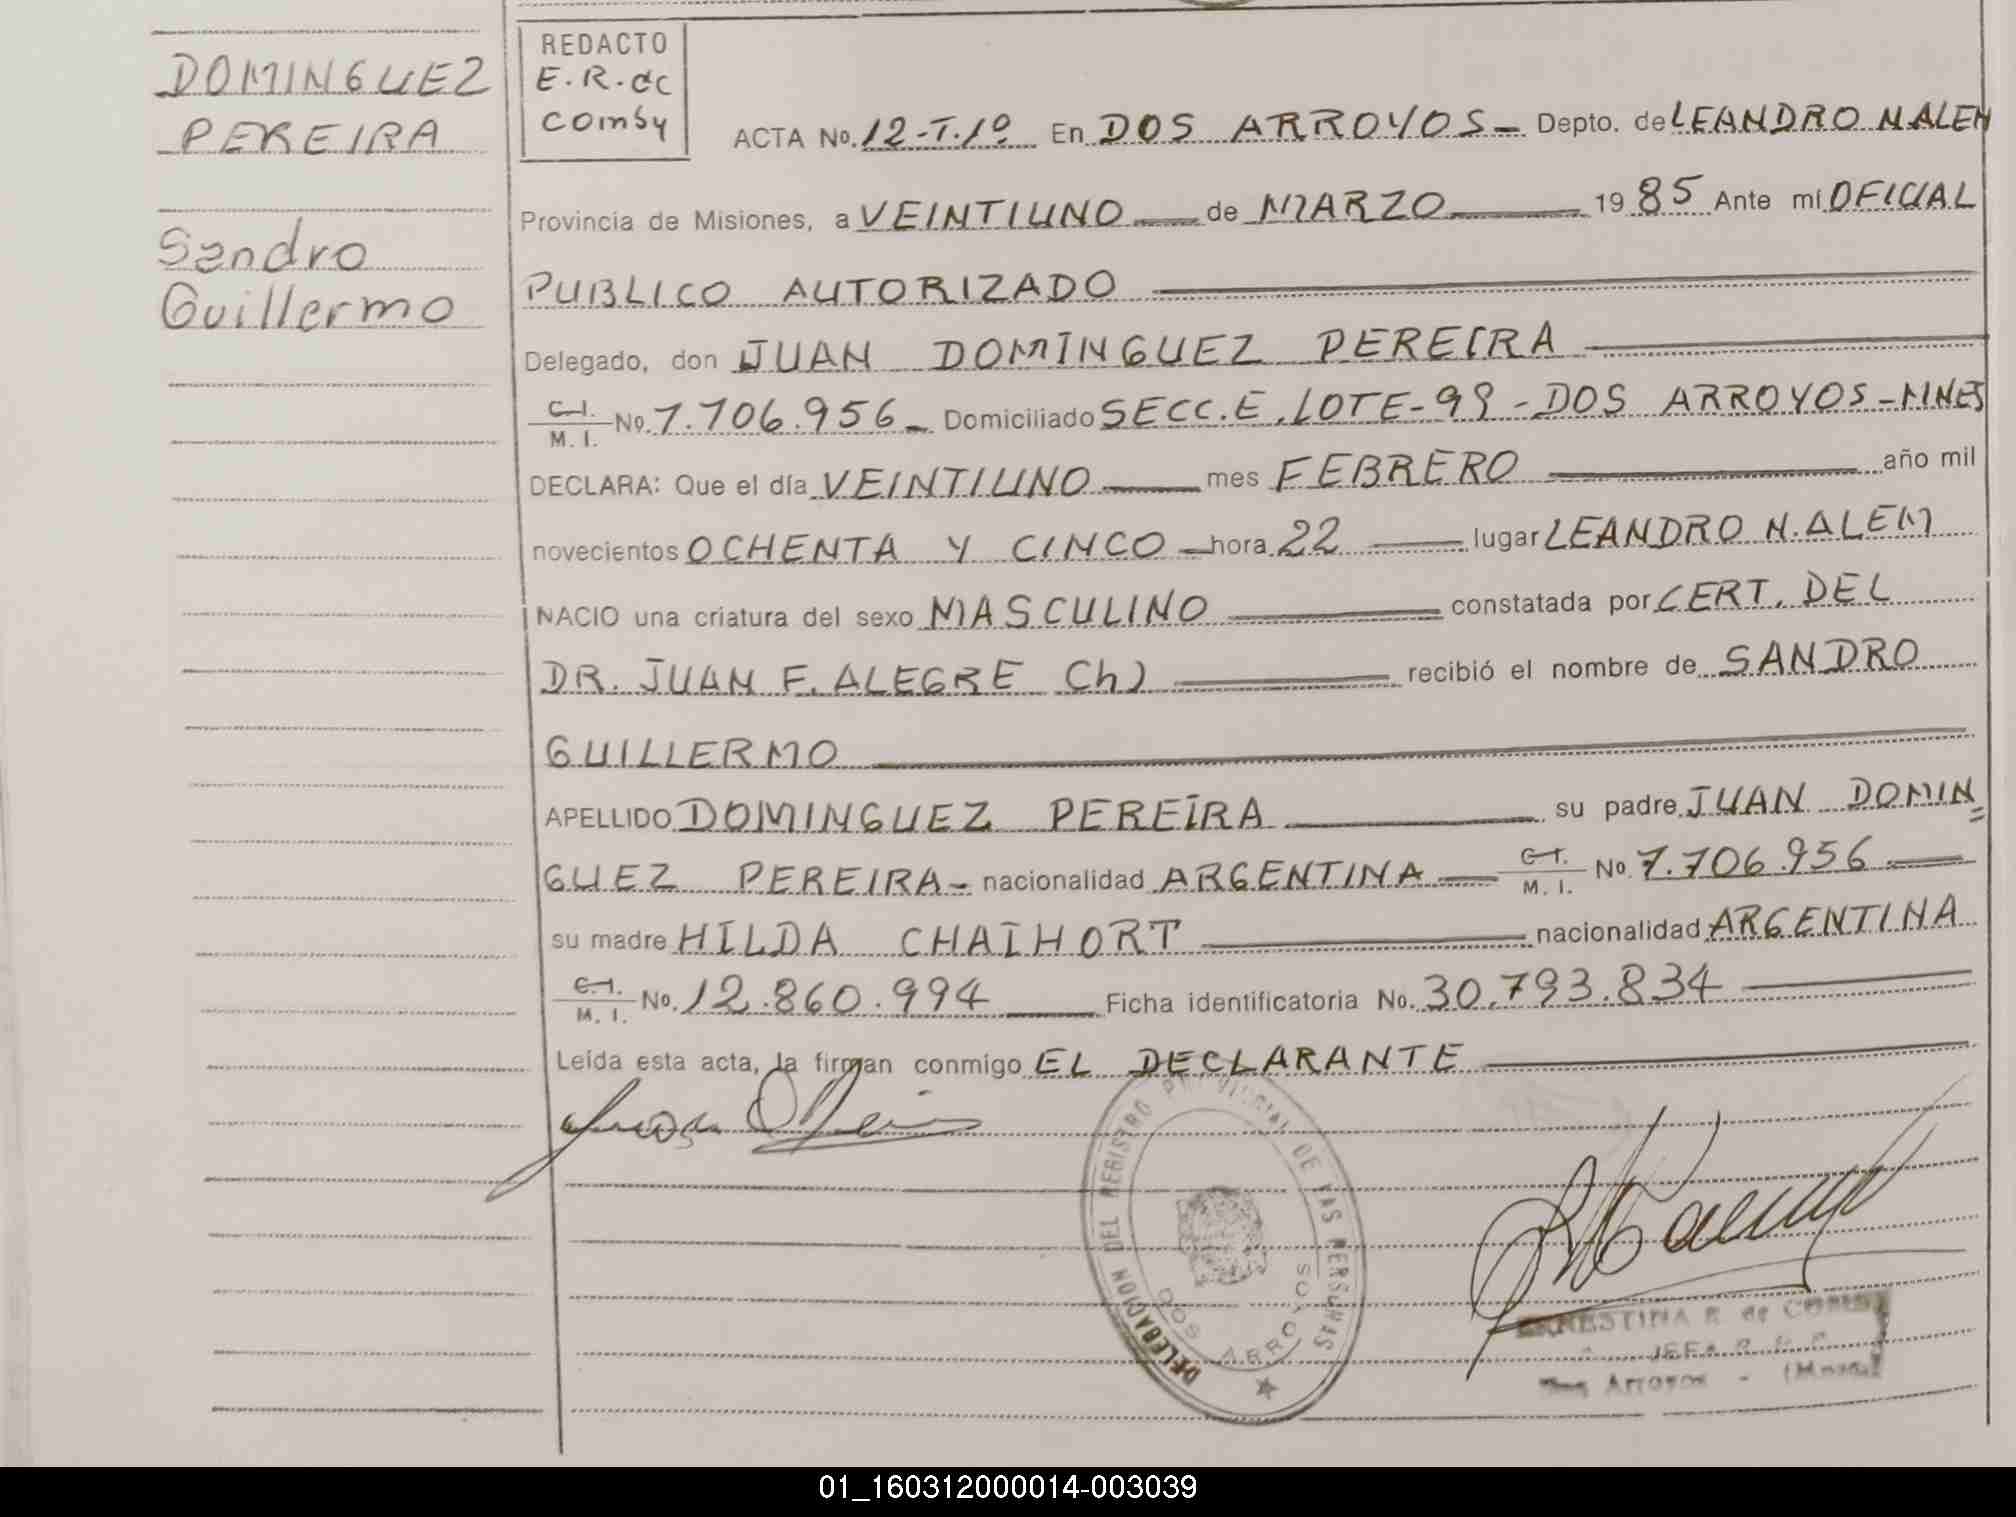 DOMINGUEZ
PEREIRA
Sandro
Guillermo
REDACTO
E.R. de
Comby
ACTA No. 12-T.1º En DOS ARROYOS - Depto. de LEANDRO N ALEM
Provincia de Misiones, a VEINTIUNO de MARZO 1985 Ante mí OFICIAL
PUBLICO AUTORIZADO
Delegado, don JUAN DOMINGUEZ PEREIRA
C.I. M.I. No. 7.706.956 Domiciliado SECC.E, LOTE-99-DOS ARROYOS-MNES
DECLARA: Que el día VEINTIUNO mes FEBRERO año mil
novecientos OCHENTA Y CINCO hora 22 lugar LEANDRO N. ALEM
NACIO una criatura del sexo MASCULINO constatada por CERT. DEL
DR. JUAN F. ALEGRE (h) recibió el nombre de SANDRO
GUILLERMO
APELLIDO DOMINGUEZ PEREIRA su padre JUAN DOMIN=
GUEZ PEREIRA - nacionalidad ARGENTINA C.I. M.I. No. 7.706.956
su madre HILDA CHAIHORT nacionalidad ARGENTINA
C.I. M.I. No. 12.860.994 Ficha identificatoria No. 30.793.834
Leída esta acta, la firman conmigo EL DECLARANTE
DELEGACION DEL REGISTRO PROVINCIAL DE LAS PERSONAS
DOS ARROYOS
ERNESTINA R. de COMBY
JEFA
Dos Arroyos - (Mnes.)
01_160312000014-003039